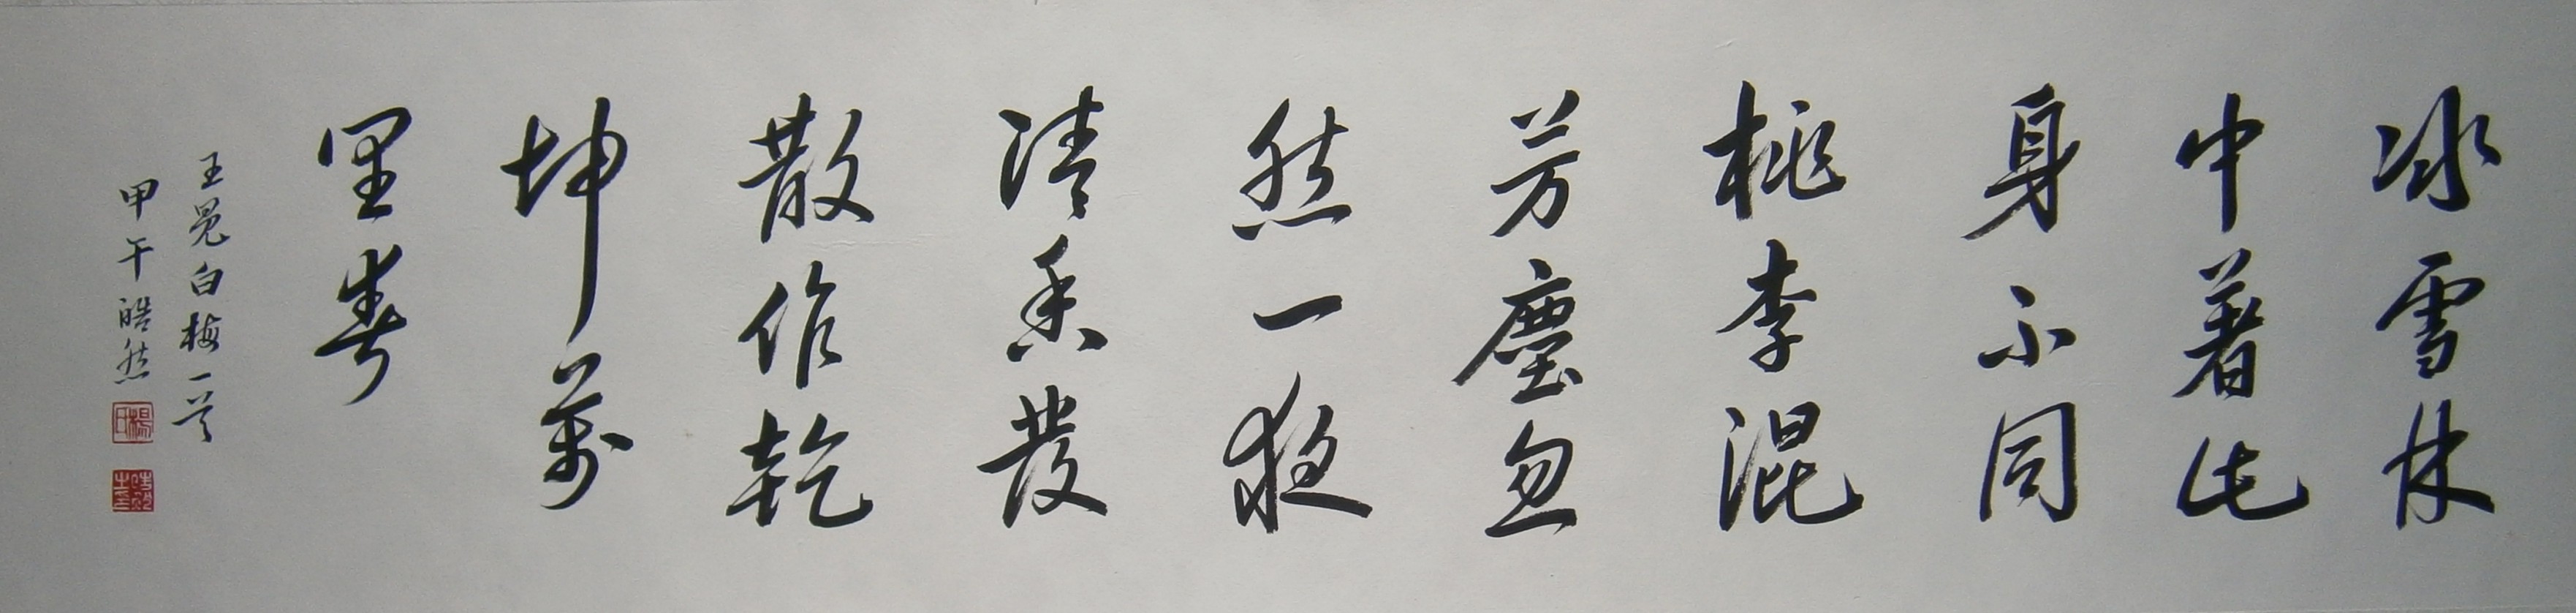 冰雪林
中著此
身不同
桃李混
芳塵忽
然一夜
清香發
散作乾
坤萬
里春
王冕白梅一首
甲午皓然